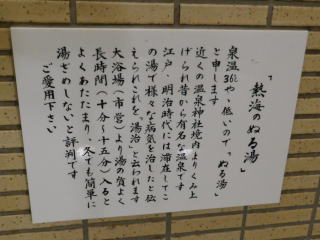 「熱海のぬる湯」
泉温36℃や、低いので「ぬる湯」
と申します
近くの温泉神社境内よりくみ上
げられ昔から有名な温泉です
江戸・明治時代には滞在してこ
の湯で様々な病気を治したと伝
えられこれを「湯治」と云われます
大浴場(市営)より湯の質よく
長時間(十分〜十五分)入ると
よくあたたまり、冬でも簡単に
湯ざめしないと評判です
ご愛用下さい